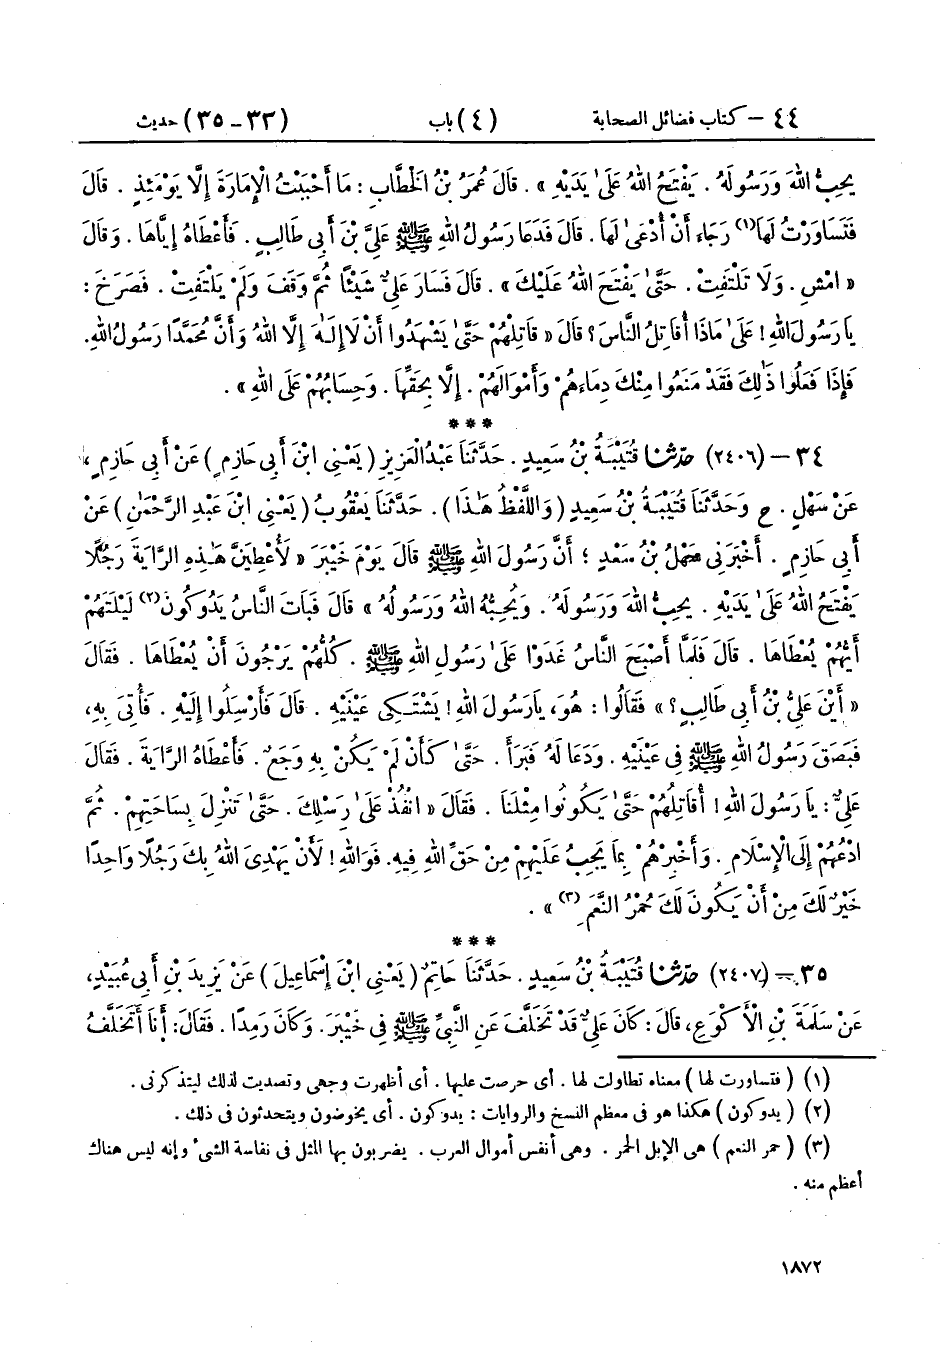 ٤٤ – كتاب فضائل الصحابة (٤) باب (٣٣ – ٣٥) حديث
يُحِبُّ اللهَ وَرَسُولَهُ . يَفْتَحُ اللهُ عَلَىٰ يَدَيْهِ » . قَالَ عُمَرُ بْنُ الْخَطَّابِ : مَا أَحْبَبْتُ الْإِمَارَةَ إِلَّا يَوْمَئِذٍ . قَالَ
فَتَسَاوَرْتُ لَهَا(١) رَجَاءَ أَنْ أُدْعَىٰ لَهَا . قَالَ فَدَعَا رَسُولُ اللهِ ﷺ عَلِيَّ بْنَ أَبِي طَالِبٍ . فَأَعْطَاهُ إِيَّاهَا . وَقَالَ
« امْشِ . وَلَا تَلْتَفِتْ . حَتَّىٰ يَفْتَحَ اللهُ عَلَيْكَ » . قَالَ فَسَارَ عَلِيٌّ شَيْئًا ثُمَّ وَقَفَ وَلَمْ يَلْتَفِتْ . فَصَرَخَ :
يَا رَسُولَ اللهِ ! عَلَىٰ مَاذَا أُقَاتِلُ النَّاسَ ؟ قَالَ « قَاتِلْهُمْ حَتَّىٰ يَشْهَدُوا أَنْ لَا إِلَـٰهَ إِلَّا اللهُ وَأَنَّ مُحَمَّدًا رَسُولُ اللهِ .
فَإِذَا فَعَلُوا ذَٰلِكَ فَقَدْ مَنَعُوا مِنْكَ دِمَاءَهُمْ وَأَمْوَالَهُمْ . إِلَّا بِحَقِّهَا . وَحِسَابُهُمْ عَلَى اللهِ » .
***
٣٤ – (٢٤٠٦) حَدَّثَنَا قُتَيْبَةُ بْنُ سَعِيدٍ . حَدَّثَنَا عَبْدُ الْعَزِيزِ ( يَعْنِي ابْنَ أَبِي حَازِمٍ ) عَنْ أَبِي حَازِمٍ ،
عَنْ سَهْلٍ . ح وَحَدَّثَنَا قُتَيْبَةُ بْنُ سَعِيدٍ ( وَاللَّفْظُ هَـٰذَا ) . حَدَّثَنَا يَعْقُوبُ ( يَعْنِي ابْنَ عَبْدِ الرَّحْمَٰنِ ) عَنْ
أَبِي حَازِمٍ . أَخْبَرَنِي سَهْلُ بْنُ سَعْدٍ ؛ أَنَّ رَسُولَ اللهِ ﷺ قَالَ يَوْمَ خَيْبَرَ « لَأُعْطِيَنَّ هَـٰذِهِ الرَّايَةَ رَجُلًا
يَفْتَحُ اللهُ عَلَىٰ يَدَيْهِ . يُحِبُّ اللهَ وَرَسُولَهُ . وَيُحِبُّهُ اللهُ وَرَسُولُهُ » قَالَ فَبَاتَ النَّاسُ يَدُوكُونَ(٢) لَيْلَتَهُمْ
أَيُّهُمْ يُعْطَاهَا . قَالَ فَلَمَّا أَصْبَحَ النَّاسُ غَدَوْا عَلَىٰ رَسُولِ اللهِ ﷺ . كُلُّهُمْ يَرْجُونَ أَنْ يُعْطَاهَا . فَقَالَ
« أَيْنَ عَلِيُّ بْنُ أَبِي طَالِبٍ ؟ » فَقَالُوا : هُوَ ، يَا رَسُولَ اللهِ ! يَشْتَكِي عَيْنَيْهِ . قَالَ فَأَرْسِلُوا إِلَيْهِ . فَأُتِيَ بِهِ ،
فَبَصَقَ رَسُولُ اللهِ ﷺ فِي عَيْنَيْهِ . وَدَعَا لَهُ فَبَرَأَ . حَتَّىٰ كَأَنْ لَمْ يَكُنْ بِهِ وَجَعٌ . فَأَعْطَاهُ الرَّايَةَ . فَقَالَ
عَلِيٌّ : يَا رَسُولَ اللهِ ! أُقَاتِلُهُمْ حَتَّىٰ يَكُونُوا مِثْلَنَا . فَقَالَ « انْفُذْ عَلَىٰ رِسْلِكَ . حَتَّىٰ تَنْزِلَ بِسَاحَتِهِمْ . ثُمَّ
ادْعُهُمْ إِلَى الْإِسْلَامِ . وَأَخْبِرْهُمْ بِمَا يَجِبُ عَلَيْهِمْ مِنْ حَقِّ اللهِ فِيهِ . فَوَاللهِ ! لَأَنْ يَهْدِيَ اللهُ بِكَ رَجُلًا وَاحِدًا
خَيْرٌ لَكَ مِنْ أَنْ يَكُونَ لَكَ حُمْرُ النَّعَمِ(٣) » .
***
٣٥ – (٢٤٠٧) حَدَّثَنَا قُتَيْبَةُ بْنُ سَعِيدٍ . حَدَّثَنَا حَاتِمٌ ( يَعْنِي ابْنَ إِسْمَاعِيلَ ) عَنْ يَزِيدَ بْنِ أَبِي عُبَيْدٍ ،
عَنْ سَلَمَةَ بْنِ الْأَكْوَعِ ، قَالَ : كَانَ عَلِيٌّ قَدْ تَخَلَّفَ عَنِ النَّبِيِّ ﷺ فِي خَيْبَرَ . وَكَانَ رَمِدًا . فَقَالَ : أَنَا أَتَخَلَّفُ
(١) ( فتساورت لها ) معناه تطاولت لها . أى حرصت عليها . أى أظهرت وجهى وتصديت لذلك ليتذكرنى .
(٢) ( يدوكون ) هكذا هو فى معظم النسخ والروايات : يدوكون . أى يخوضون ويتحدثون فى ذلك .
(٣) ( حمر النعم ) هى الإبل الحمر . وهى أنفس أموال العرب . يضربون بها المثل فى نفاسة الشىء وإنه ليس هناك
أعظم منه .
١٨٧٢